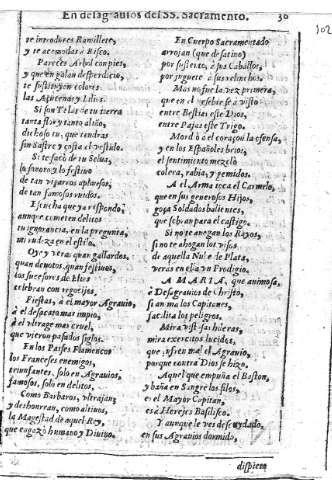 En desagrauios del SS. Sacramento. 30
102
te introduces Ramillete,
y te acomodas à Risco.
Pareces Arbol con pies,
y que en galan desperdicio,
te sostituyen colores
las Açucenas y Lilios.
Si son Telas de tu tierra
tanta flor y tanto aliño,
dichoso tu, que tendras
sin Sastre y costa el vestido.
Si te sacò de tu Selua,
lo sonoro y lo festiuo
de tan vizarros aplausos,
de tan famosos ruidos.
Escucha que ya respondo,
aunque cometen delitos
tu ignorancia, en la pregunta,
mi rudeza en el estilo.
Oy ves tan quan gallardos,
quan deuotos, quan festiuos,
los sucesores de Elias
celebran con regocijos,
Fiestas, à el mayor Agrauio,
à el desacato mas impio,
à el vltrage mas cruel,
que vieron pasados siglos.
En los Paises Flamencos
los Franceses enemigos,
triunfantes, solo en Agrauios,
famosos, solo en delitos.
Como Barbaros, vltrajan,
y deshonran, como altiuos,
la Magestad de aquel Rey,
que gozò humano y Diuino.
En Cuerpo Sacramentado
arrojan (que desatino)
por sustento, à sus Cauallos,
por juguete à sus relinchos.
Mas no fue la vez primera,
que en el Pesebre se à visto
entre Bestias este Dios,
entre Pajas este Trigo.
Mordiò el coraçon la ofensa,
y en los Españoles brios,
el sentimiento mezclò
colera, rabia, y gemidos.
A el Arma toca el Carmelo,
que en sus generosos Hijos,
goza Soldados balientes,
que se buscan para el castigo.
Si no te anegan los Rayos,
si no te ahogan los visos
de aquella Nube de Plata,
veras en ella vn Prodigio.
A MARIA, que animosa,
à Desagrauios de Christo,
si anima los Capitanes,
facilita los peligros.
Mira vistosas hileras,
mira exercitos lucidos,
que sufren mal el Agrauio,
porque contra Dios se hizo.
Aquel que empuña el Baston,
y baña en Sangre los filos,
es el Mayor Capitan,
es à Herejes Basilisco.
Y aunque le ves descuydado,
en sus Agrauios dormido,
dispierto